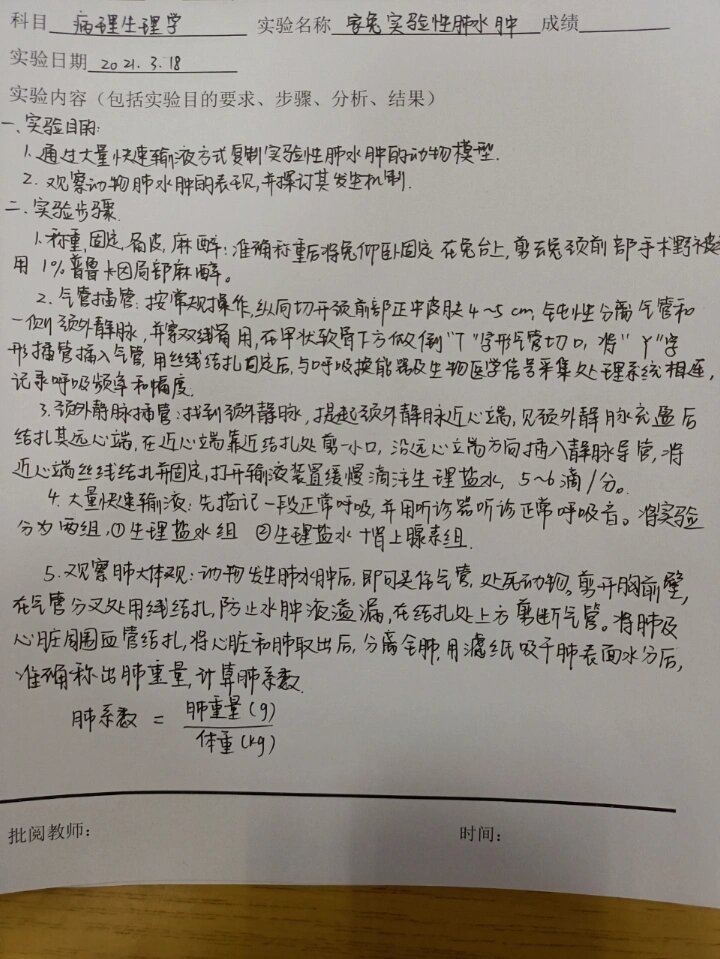 科目 病理生理学 实验名称 家兔实验性肺水肿 成绩
实验日期 2021.3.18
实验内容（包括实验目的要求、步骤、分析、结果）
一、实验目的:
1. 通过大量快速输液方式复制实验性肺水肿的动物模型.
2. 观察动物肺水肿的表现,并探讨其发生机制.
二、实验步骤.
1. 称重,固定,备皮,麻醉: 准确称重后将兔仰卧固定在兔台上,剪去兔颈前部手术野被毛
用1%普鲁卡因局部麻醉。
2. 气管插管: 按常规操作,纵向切开颈前部正中皮肤4~5cm,钝性分离气管和
一侧颈外静脉,并穿双线备用,在甲状软骨下方做倒"T"字形气管切口,将"Y"字
形插管插入气管,用丝线结扎固定后,与呼吸换能器及生物医学信号采集处理系统相连,
记录呼吸频率和幅度.
3. 颈外静脉插管: 找到颈外静脉,提起颈外静脉近心端,见颈外静脉充盈后
结扎其远心端,在近心端靠近结扎处剪一小口,沿远心端方向插入静脉导管,将
近心端丝线结扎并固定,打开输液装置缓慢滴注生理盐水, 5~6滴/分。
4. 大量快速输液: 先描记一段正常呼吸,并用听诊器听诊正常呼吸音。将实验
分为两组,①生理盐水组 ②生理盐水+肾上腺素组.
5. 观察肺大体观: 动物发生肺水肿后,即可夹住气管,处死动物。剪开胸前壁,
在气管分叉处用线结扎,防止水肿液溢漏,在结扎处上方剪断气管。将肺及
心脏周围血管结扎,将心脏和肺取出后,分离全肺,用滤纸吸干肺表面水分后,
准确称出肺重量,计算肺系数.
肺系数 = 肺重量(g)
体重(kg)
批阅教师: 时间: